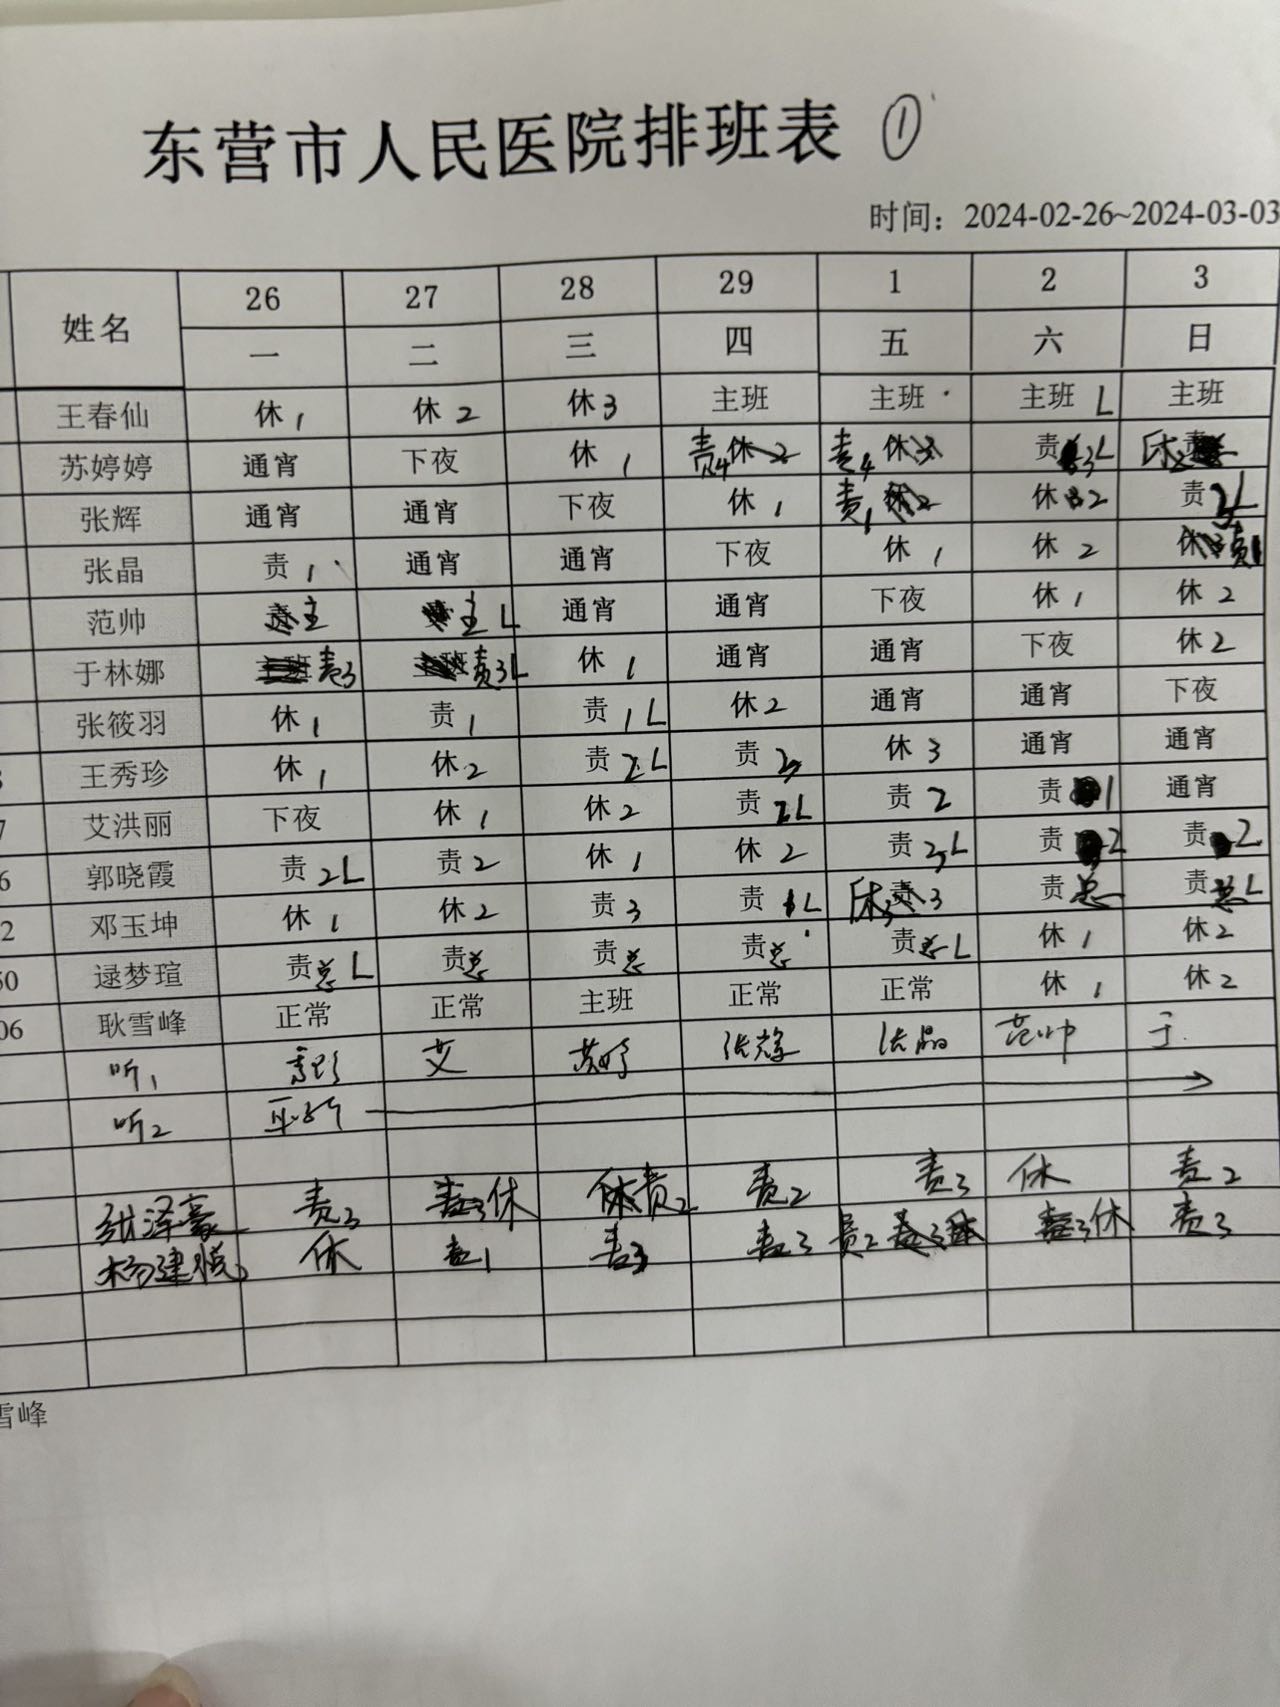 东营市人民医院排班表 ①
时间：2024-02-26~2024-03-03
姓名 26 27 28 29 1 2 3
一 二 三 四 五 六 日
王春仙 休1 休2 休3 主班 主班 主班L 主班
苏婷婷 通宵 下夜 休1 责4 休2 责4 休3 责3L 休2
张辉 通宵 通宵 下夜 休1 责1 休2 休2 责L
张晶 责1 通宵 通宵 下夜 休1 休2 休3 责1
范帅 责主 主L 通宵 通宵 下夜 休1 休2
于林娜 主班 责3 主班 责3L 休1 通宵 通宵 下夜 休2
张筱羽 休1 责1 责1L 休2 通宵 通宵 下夜
3 王秀珍 休1 休2 责2L 责3 休3 通宵 通宵
7 艾洪丽 下夜 休1 休2 责2L 责2 责1 通宵
6 郭晓霞 责2L 责2 休1 休2 责3L 责2 责2
2 邓玉坤 休1 休2 责3 责1L 休3 责3 责总 责总L
50 逯梦瑄 责总L 责总 责总 责总 责总L 休1 休2
06 耿雪峰 正常 正常 主班 正常 正常 休1 休2
听1 艾 苏婷 张辉 张晶 范帅 于
听2
张泽豪 责3 责3休 休责2 责2 责3 休 责2
杨建悦 休 责1 责3 责3 责2 责3休 责3休 责3
雪峰